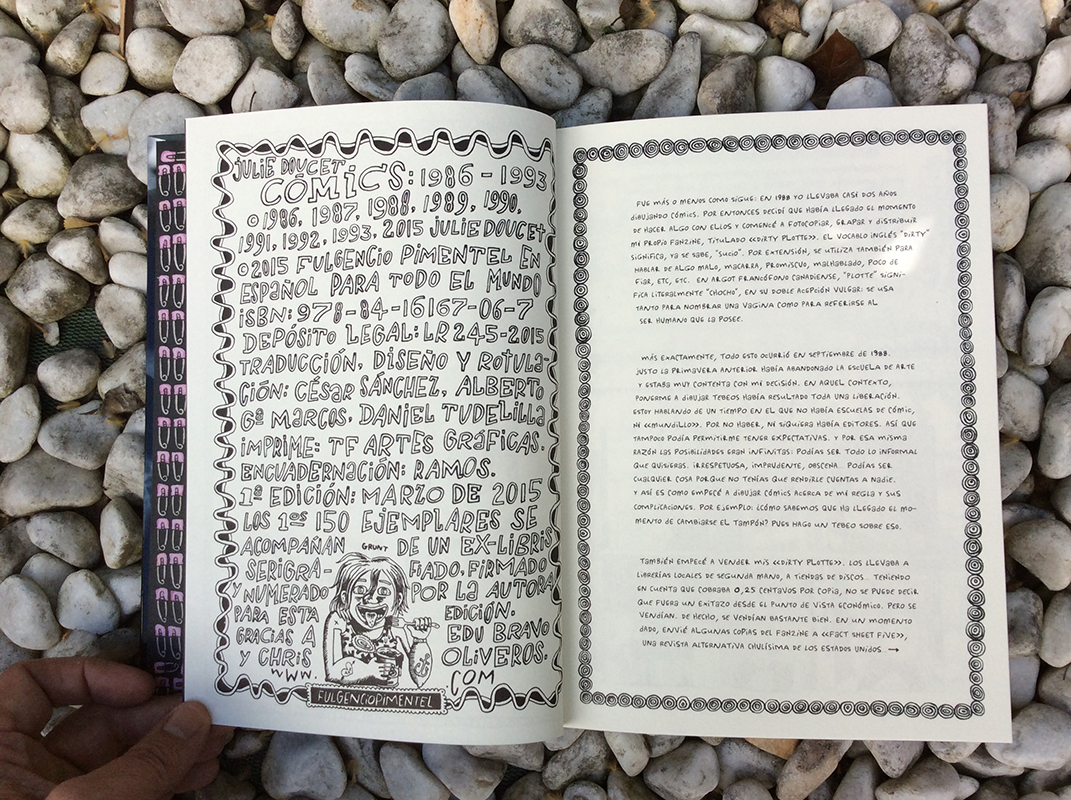 JULIE DOUCET
CÓMICS: 1986 - 1993
©1986, 1987, 1988, 1989, 1990,
1991, 1992, 1993, 2015 JULIE DOUCET
©2015 FULGENCIO PIMENTEL EN
ESPAÑOL PARA TODO EL MUNDO
ISBN: 978-84-16167-06-7
DEPÓSITO LEGAL: LR 245-2015
TRADUCCIÓN, DISEÑO Y ROTULA-
CIÓN: CÉSAR SÁNCHEZ, ALBERTO
Gª MARCOS, DANIEL TUDELILLA
IMPRIME: TF ARTES GRÁFICAS.
ENCUADERNACIÓN: RAMOS.
1ª EDICIÓN: MARZO DE 2015
LOS 1os 150 EJEMPLARES SE
ACOMPAÑAN DE UN EX-LIBRIS
GRUNT
SERIGRA- FIADO, FIRMADO
Y NUMERADO POR LA AUTORA
PARA ESTA EDICIÓN.
GRACIAS A EDU BRAVO
Y CHRIS OLIVEROS.
WWW. COM
FULGENCIOPIMENTEL
FUE MÁS O MENOS COMO SIGUE: EN 1988 YO LLEVABA CASI DOS AÑOS
DIBUJANDO CÓMICS. POR ENTONCES DECIDÍ QUE HABÍA LLEGADO EL MOMENTO
DE HACER ALGO CON ELLOS Y COMENCÉ A FOTOCOPIAR, GRAPAR Y DISTRIBUIR
MI PROPIO FANZINE, TITULADO «DIRTY PLOTTE». EL VOCABLO INGLÉS "DIRTY"
SIGNIFICA, YA SE SABE, "SUCIO". POR EXTENSIÓN, SE UTILIZA TAMBIÉN PARA
HABLAR DE ALGO MALO, MACARRA, PROMISCUO, MALHABLADO, POCO DE
FIAR, ETC, ETC. EN ARGOT FRANCÓFONO CANADIENSE, "PLOTTE" SIGNI-
FICA LITERALMENTE "CHOCHO", EN SU DOBLE ACEPCIÓN VULGAR: SE USA
TANTO PARA NOMBRAR UNA VAGINA COMO PARA REFERIRSE AL
SER HUMANO QUE LA POSEE.
MÁS EXACTAMENTE, TODO ESTO OCURRIÓ EN SEPTIEMBRE DE 1988.
JUSTO LA PRIMAVERA ANTERIOR HABÍA ABANDONADO LA ESCUELA DE ARTE
Y ESTABA MUY CONTENTA CON MI DECISIÓN. EN AQUEL CONTEXTO,
PONERME A DIBUJAR TEBEOS HABÍA RESULTADO TODA UNA LIBERACIÓN.
ESTOY HABLANDO DE UN TIEMPO EN EL QUE NO HABÍA ESCUELAS DE CÓMIC,
NI «MUNDILLO». POR NO HABER, NI SIQUIERA HABÍA EDITORES. ASÍ QUE
TAMPOCO PODÍA PERMITIRME TENER EXPECTATIVAS. Y POR ESA MISMA
RAZÓN LAS POSIBILIDADES ERAN INFINITAS: PODÍAS SER TODO LO INFORMAL
QUE QUISIERAS. IRRESPETUOSA, IMPRUDENTE, OBSCENA. PODÍAS SER
CUALQUIER COSA PORQUE NO TENÍAS QUE RENDIRLE CUENTAS A NADIE.
Y ASÍ ES COMO EMPECÉ A DIBUJAR CÓMICS ACERCA DE MI REGLA Y SUS
COMPLICACIONES. POR EJEMPLO: ¿CÓMO SABEMOS QUE HA LLEGADO EL MO-
MENTO DE CAMBIARSE EL TAMPÓN? PUES HAGO UN TEBEO SOBRE ESO.
TAMBIÉN EMPECÉ A VENDER MIS «DIRTY PLOTTE». LOS LLEVABA A
LIBRERÍAS LOCALES DE SEGUNDA MANO, A TIENDAS DE DISCOS. TENIENDO
EN CUENTA QUE COBRABA 0,25 CENTAVOS POR COPIA, NO SE PUEDE DECIR
QUE FUERA UN EXITAZO DESDE EL PUNTO DE VISTA ECONÓMICO. PERO SE
VENDÍAN. DE HECHO, SE VENDÍAN BASTANTE BIEN. EN UN MOMENTO
DADO, ENVIÉ ALGUNAS COPIAS DEL FANZINE A «FACT SHEET FIVE»,
UNA REVISTA ALTERNATIVA CHULÍSIMA DE LOS ESTADOS UNIDOS →